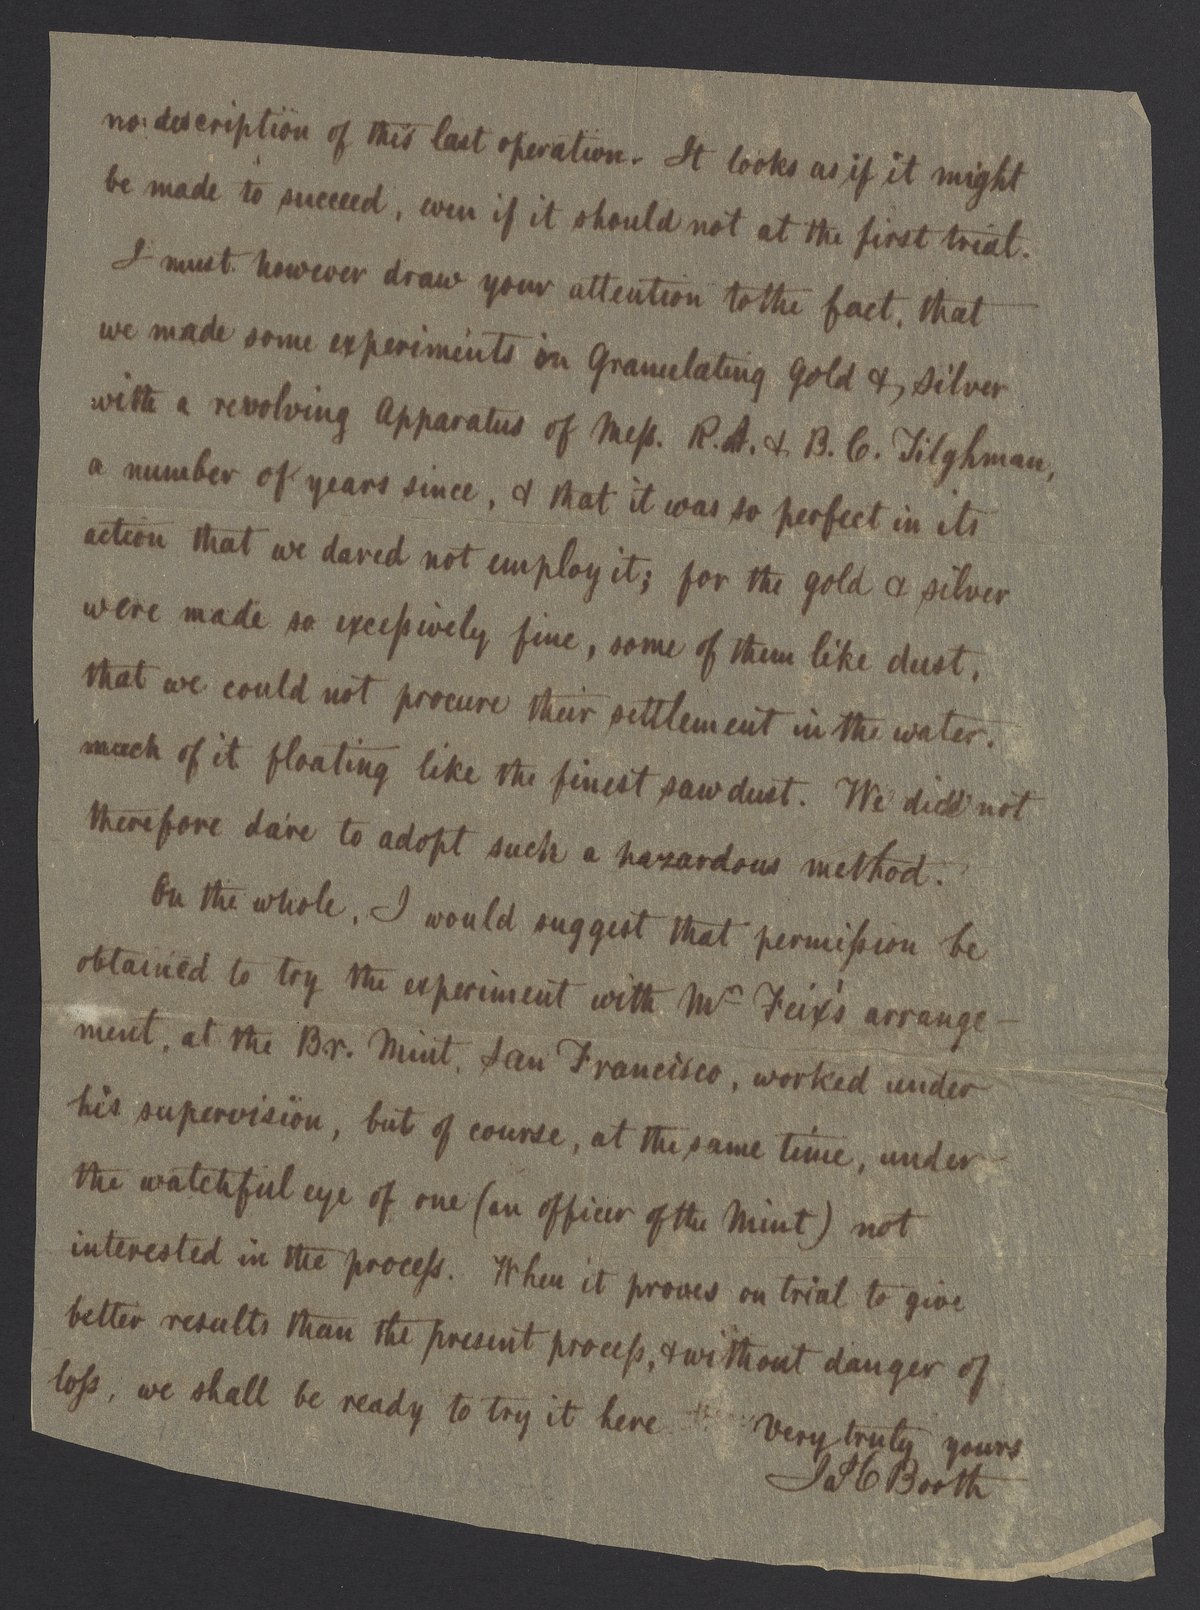 no description of this last operation. It looks as if it might
be made to succeed, even if it should not at the first trial.
I must however draw your attention to the fact, that
we made some experiments in Granulating Gold & Silver
with a revolving Apparatus of Meſs. R.A. & B.C. Tilghman,
a number of years since, & that it was so perfect in its
action that we dared not employ it; for the gold & silver
were made so exceſsively fine, some of them like dust,
that we could not procure their settlement in the water,
much of it floating like the finest sawdust. We did not
therefore dare to adopt such a hazardous method.
On the whole, I would suggest that permiſsion be
obtained to try the experiment with Mr Feix's arrange-
ment, at the Br. Mint, San Francisco, worked under
his supervision, but of course, at the same time, under
the watchful eye of one (an officer of the Mint) not
interested in the proceſs. When it proves on trial to give
better results than the present proceſs, & without danger of
loſs, we shall be ready to try it here
Very truly yours
Jas C Booth